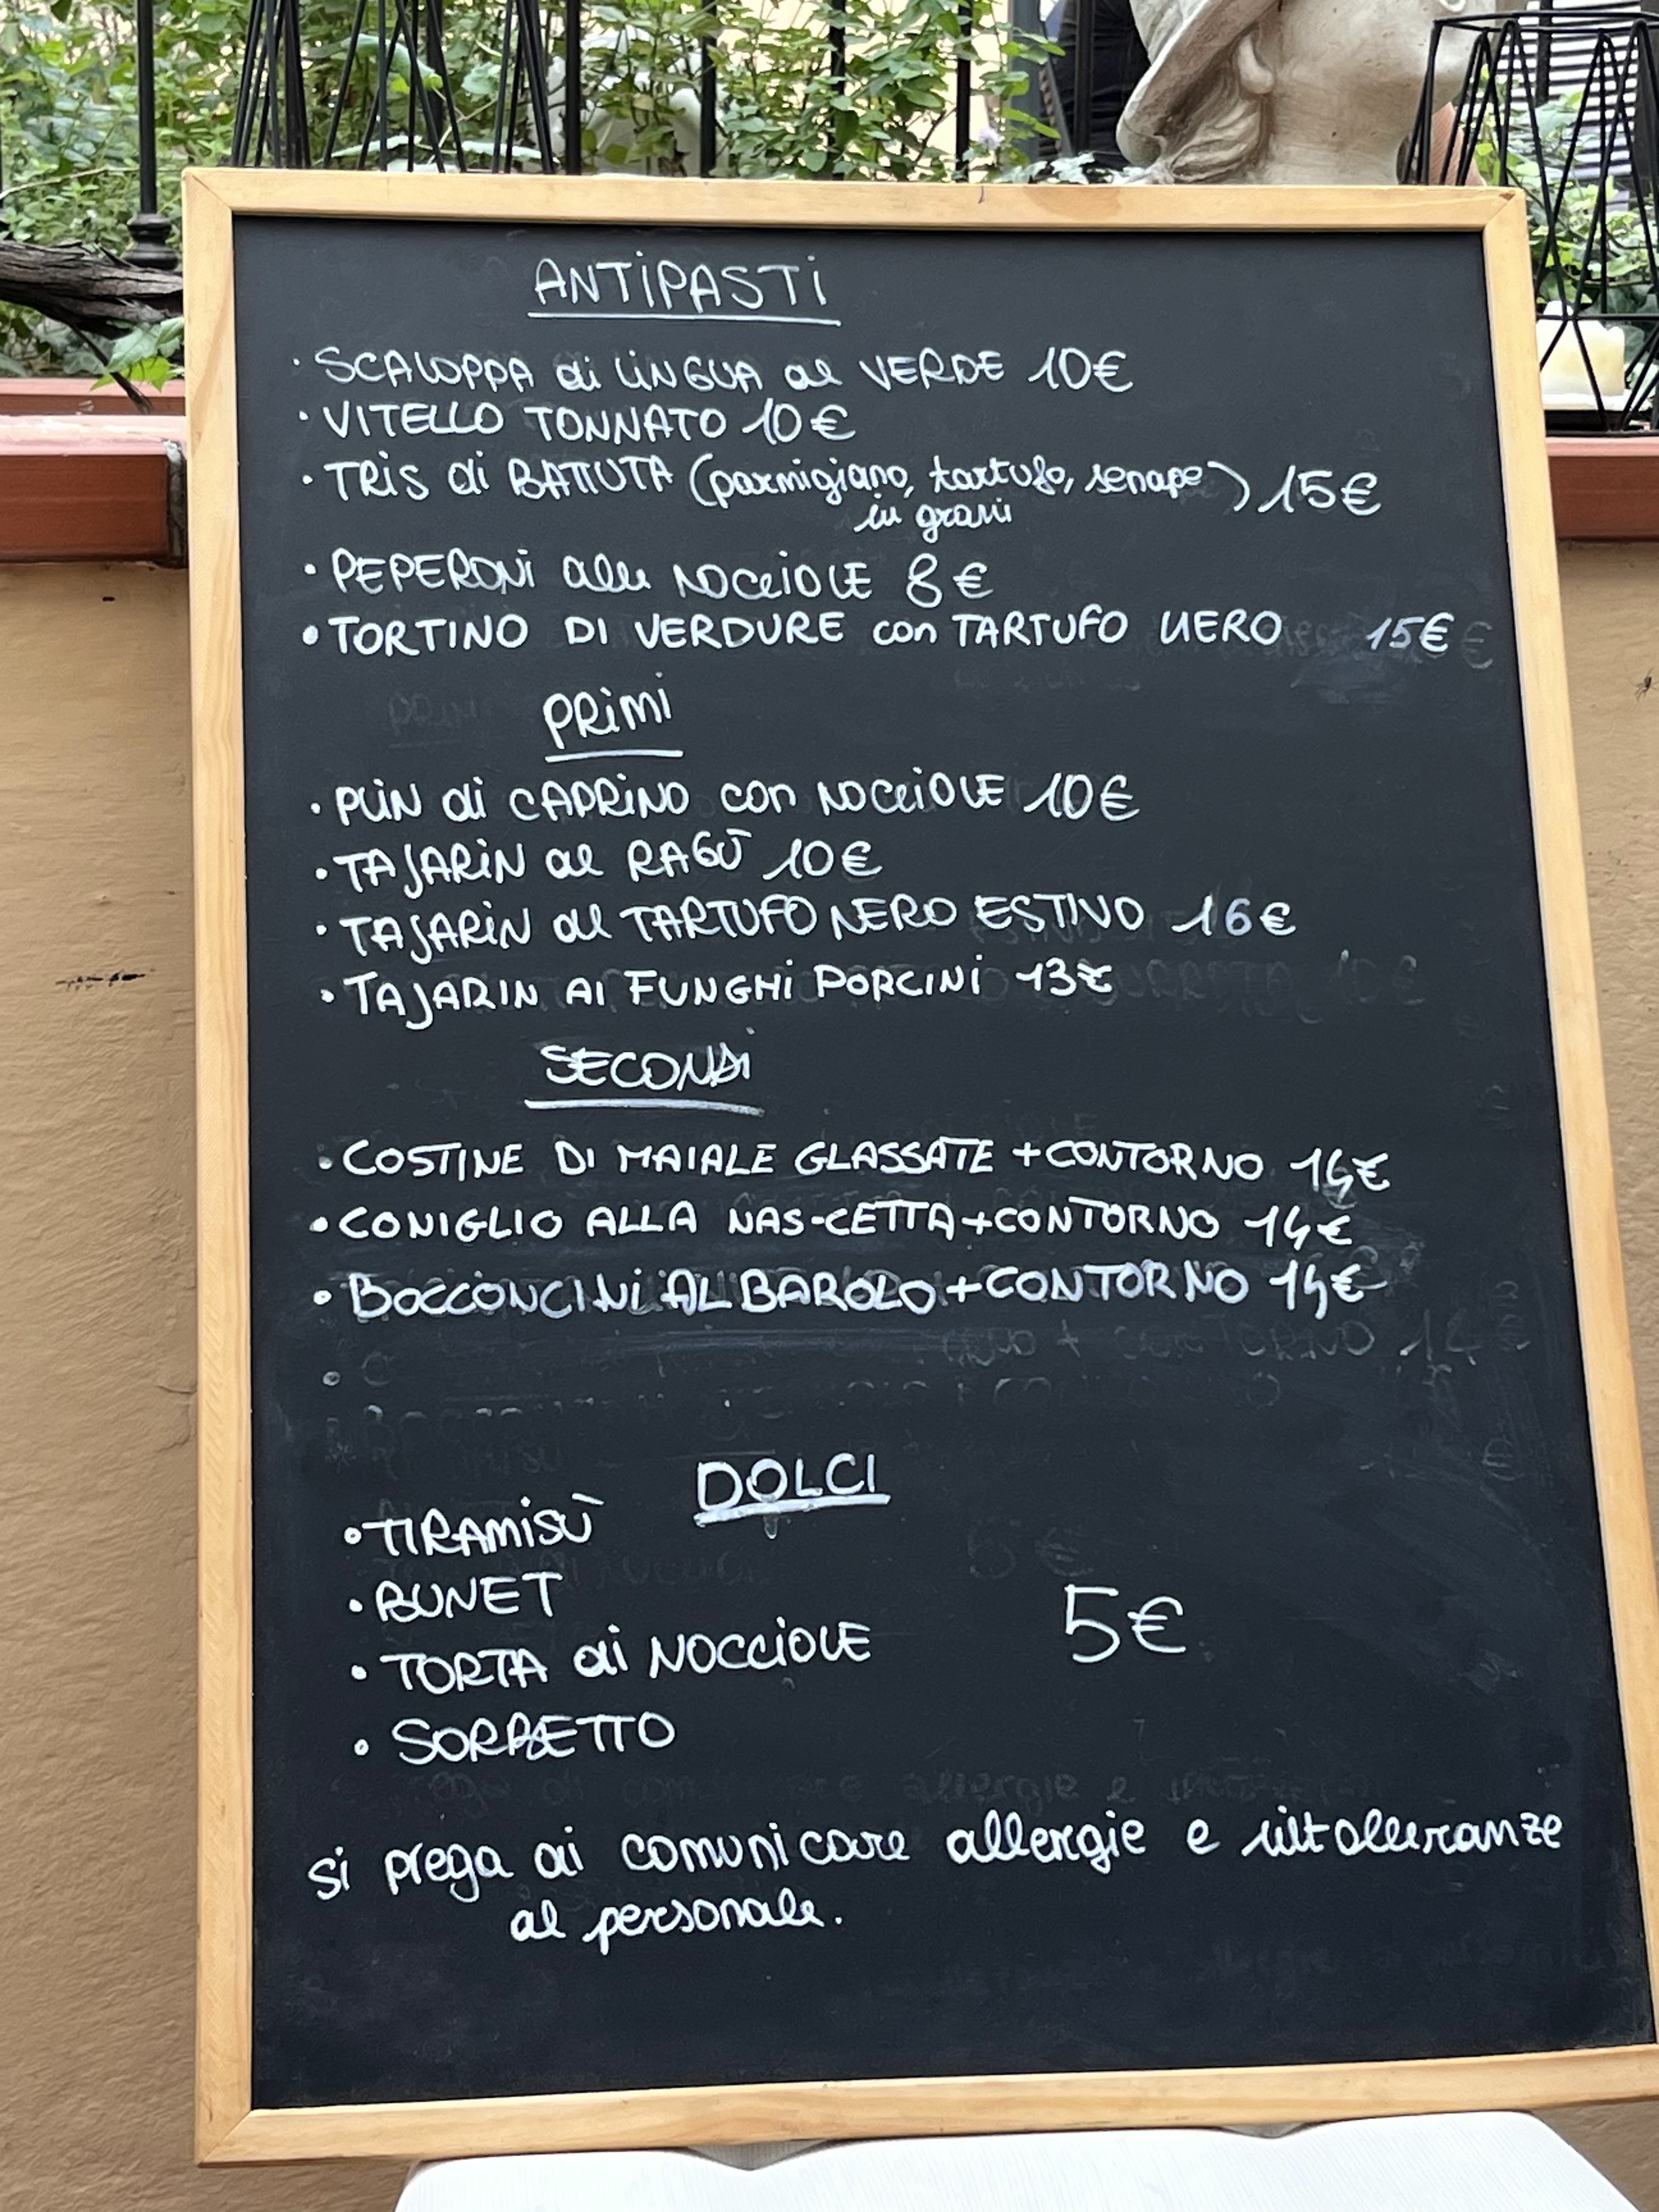 ANTIPASTI
· SCALOPPA di LINGUA al VERDE 10€
· VITELLO TONNATO 10€
· TRIS di BATTUTA (parmigiano, tartufo, senape) 15€
in grani
· PEPERONI alle NOCCIOLE 8€
• TORTINO DI VERDURE con TARTUFO NERO 15€
PRIMI
· PLIN di CAPRINO con NOCCIOLE 10€
· TAJARIN al RAGÙ 10€
· TAJARIN al TARTUFO NERO ESTIVO 16€
• TAJARIN AI FUNGHI PORCINI 13€
SECONDI
• COSTINE DI MAIALE GLASSATE + CONTORNO 14€
• CONIGLIO ALLA NAS-CETTA + CONTORNO 14€
• BOCCONCINI AL BAROLO + CONTORNO 14€
DOLCI
• TIRAMISÙ
• BUNET
• TORTA di NOCCIOLE 5€
• SORBETTO
si prega di comunicare allergie e intolleranze
al personale.